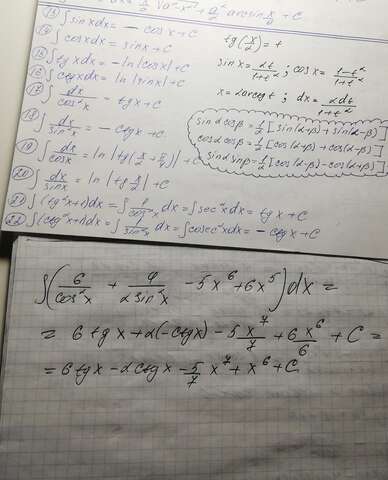 √a²-x² + a²/2 arcsin x/a + C
15) ∫ sinx dx = - cosx + C
14) ∫ cosx dx = sinx + C
15) ∫ tgx dx = - ln|cosx| + C
16) ∫ ctgx dx = ln|sinx| + C
17) ∫ dx/cos²x = tgx + C
18) ∫ dx/sin²x = - ctgx + C
19) ∫ dx/cosx = ln|tg(x/2 + π/4)| + C
20) ∫ dx/sinx = ln|tg x/2| + C
21) ∫ (tg²x+1)dx = ∫ 1/cos²x dx = ∫ sec²x dx = tgx + C
22) ∫ (ctg²x+1)dx = ∫ 1/sin²x dx = ∫ cosec²x dx = - ctgx + C
tg(x/2) = t
sinx = 2t/1+t² ; cosx = 1-t²/1+t²
x = 2arctgt ; dx = 2dt/1+t²
sinαcosβ = 1/2 [sin(α+β) + sin(α-β)]
cosαcosβ = 1/2 [cos(α-β) + cos(α+β)]
sinαsinβ = 1/2 [cos(α-β) - cos(α+β)]
∫ (6/cos²x + 4/2sin²x - 5x⁶ + 6x⁵) dx =
= 6tgx + 2(-ctgx) - 5 x⁷/7 + 6 x⁶/6 + C =
= 6tgx - 2ctgx - 5/7 x⁷ + x⁶ + C